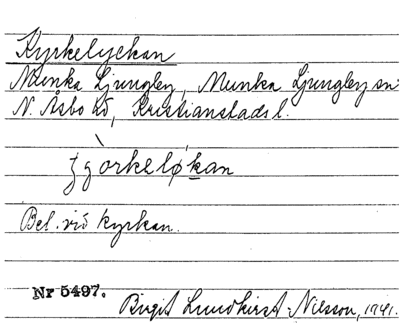 Kyrkelyckan
Munka Ljungby, Munka Ljungby sn.
N. Åsbo hd, Kristianstads l.
ʒòrkeløkan
Bel. vid kyrkan.
Nr 5497.
Birgit Lundkvist-Nilsson, 1941.